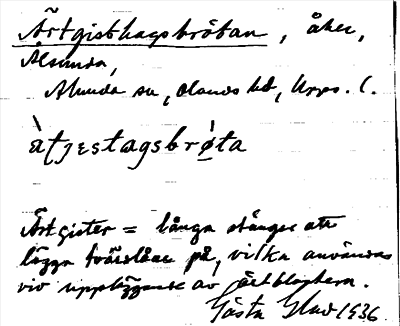 Ärtgisthagsbråtan, åker,
Ålsunda,
Alunda sn, Olands hd, Upps. l.
àtjestagsbrǿta
Ärtgister = långa stänger att
lägga tvärslåar på, vilka användas
vid uppläggande av ärtblasten.
Gösta Glad 1936